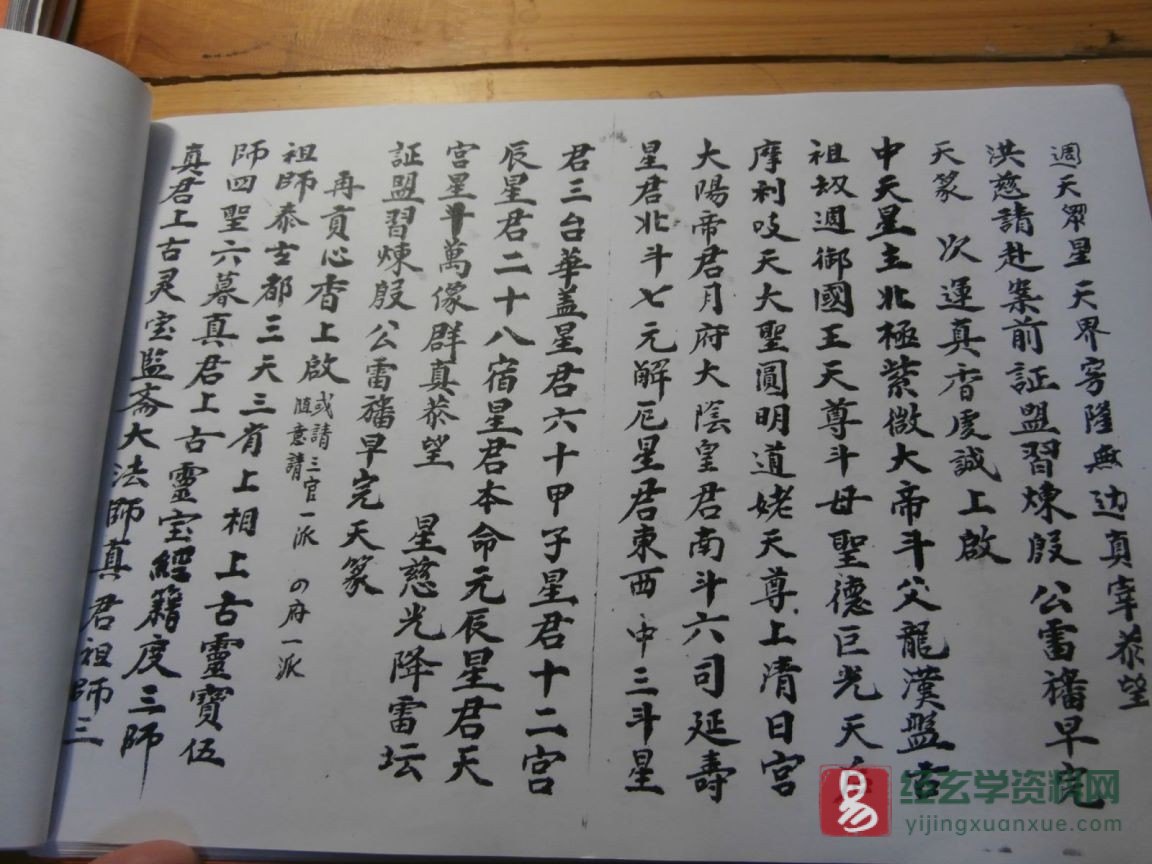 週天眾星天界穹隆無边真宰恭望
洪慈請赴案前証盟習煉殷公雷旛早完
天篆 次運真香虔誠上啟
中天星主北極紫微大帝斗父龍漢盤古
祖劫週御國王天尊斗母聖德巨光天后
摩利吱天大聖圓明道姥天尊上清日宮
大陽帝君月府大陰皇君南斗六司延壽
星君北斗七元解厄星君東西中三斗星
君三台華盖星君六十甲子星君十二宮
辰星君二十八宿星君本命元辰星君天
宮星斗萬像群真恭望 星慈光降雷坛
証盟習煉殷公雷旛早完天篆
再賁心香上啟
或請三官一派 の府一派
随意請
祖師泰玄都三天三省上相上古靈寶伍
師四聖六暮真君上古靈宝經籍度三師
真君上古灵宝監斋大法師真君祖師三
易
经玄学资料网
yijingxuanxue.com